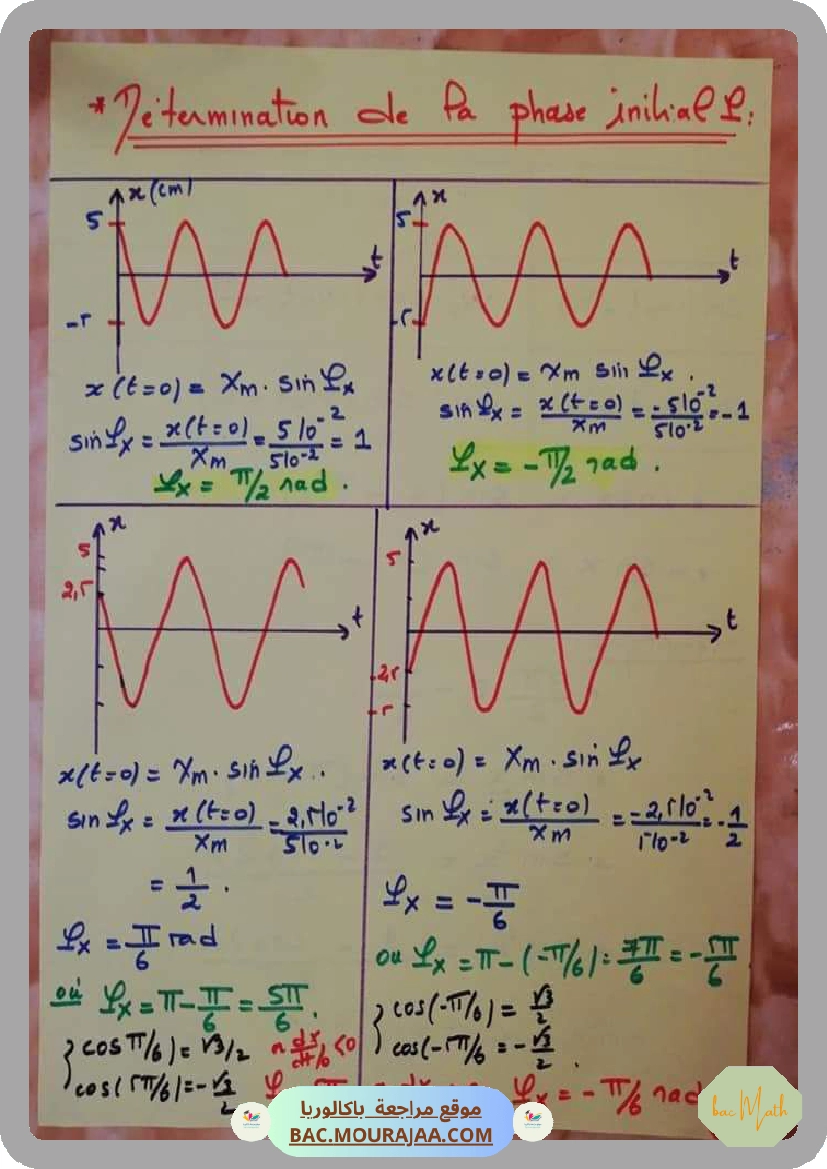 * Détermination de la phase initial φ:
x(cm)
5
t
-5
x(t=0) = Xm. sin φx
sin φx = x(t=0)/Xm = 5 10^-2/5 10^-2 = 1
φx = π/2 rad.
x
5
t
-5
x(t=0) = Xm sin φx.
sin φx = x(t=0)/Xm = -5 10^-2/5 10^-2 = -1
φx = -π/2 rad.
x
5
2,5
t
x(t=0) = Xm. sin φx..
sin φx = x(t=0)/Xm = 2,5 10^-2/5 10^-2
= 1/2.
φx = π/6 rad
où φx = π - π/6 = 5π/6.
cos π/6) = √3/2
cos(5π/6) = -√3/2
x
5
t
-2,5
-5
x(t=0) = Xm. sin φx
sin φx = x(t=0)/Xm = -2,5 10^-2/5 10^-2 = -1/2
φx = -π/6
ou φx = π - (-π/6) = 7π/6 = -5π/6
cos(-π/6) = √3/2
cos(-5π/6 = -√3/2.
φx = -π/6 rad
موقع مراجعة باكالوريا
BAC.MOURAJAA.COM
bac Math